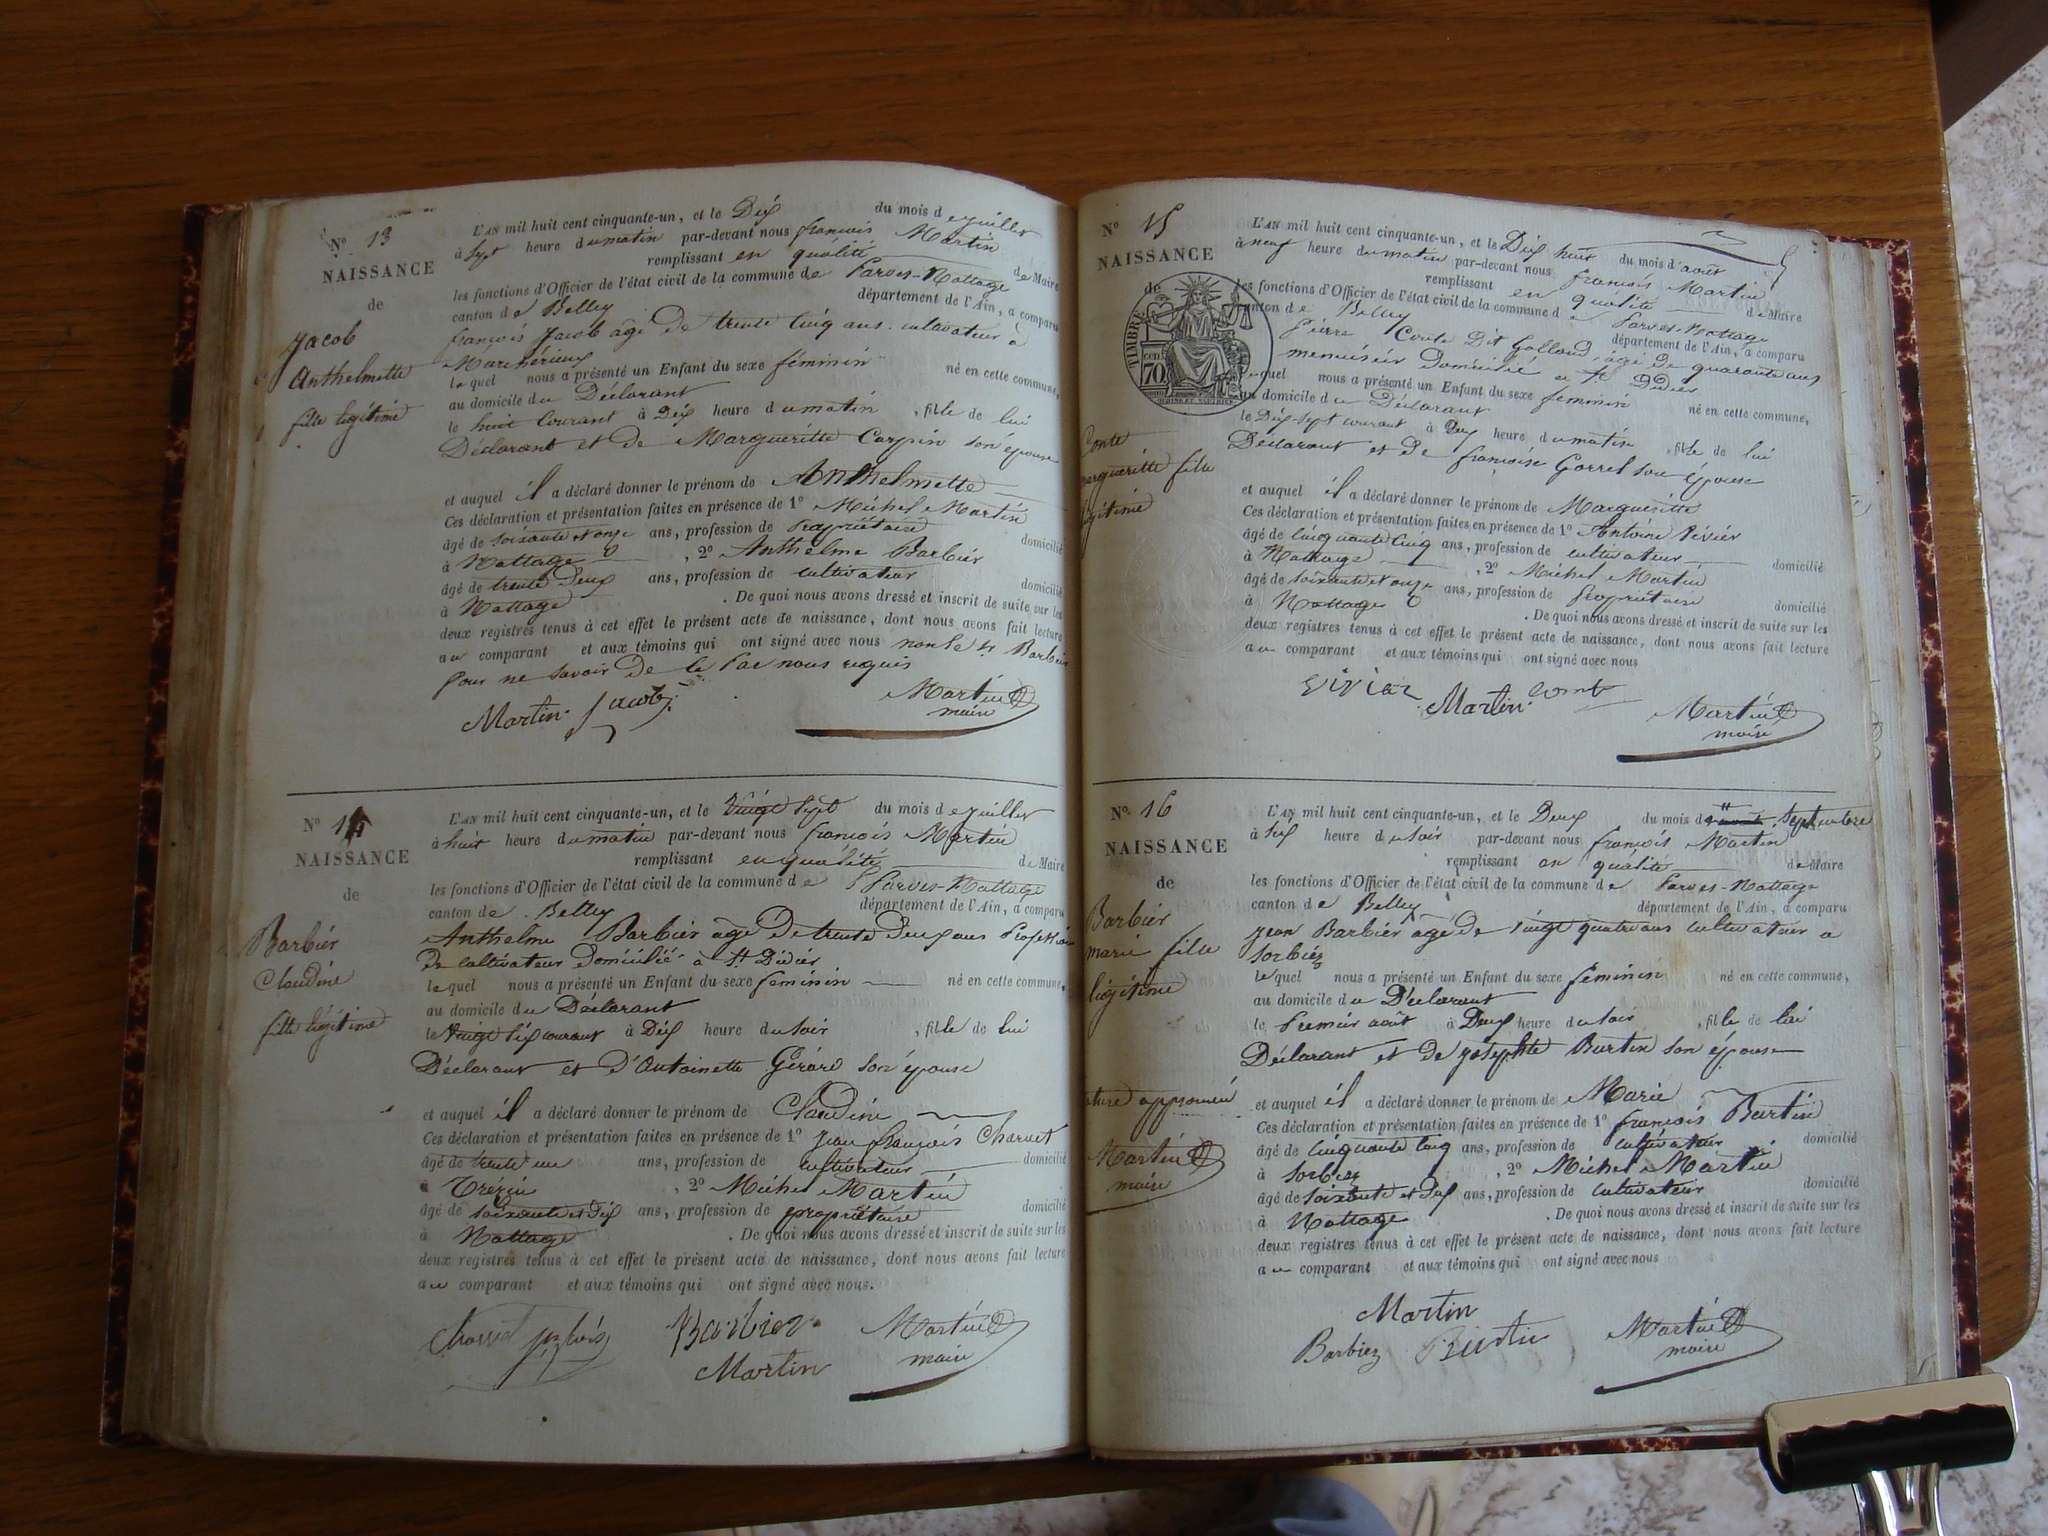 N° 13
NAISSANCE
de
Jacob
Anthelmette
fille légitime
L'AN mil huit cent cinquante-un, et le Dix du mois de juillet
à sept heure du matin par-devant nous françois Martin
remplissant en qualité de Maire
les fonctions d'Officier de l'état civil de la commune de Parves-Nattage
canton de Belley département de l'Ain, a comparu
françois Jacob âgé De trente Cinq ans cultivateur à
le quel nous a présenté un Enfant du sexe féminin né en cette commune,
au domicile du Déclarant
le huit Courant à Dix heure du matin , fille de lui
Déclarant et de Margueritte Carpin son épouse
et auquel il a déclaré donner le prénom de Anthelmette
Ces déclaration et présentation faites en présence de 1° Michel Martin
âgé de soixante et onze ans, profession de Propriétaire domicilié
à Nattage , 2° Anthelme Barbier
âgé de trente Deux ans, profession de cultivateur domicilié
à Nattage . De quoi nous avons dressé et inscrit de suite sur les
deux registres tenus à cet effet le présent acte de naissance, dont nous avons fait lecture
au comparant et aux témoins qui ont signé avec nous non le Sr Barbier
pour ne savoir De le faire nous requis
Martin Jacob Martin
maire
N° 14
NAISSANCE
de
Barbier
Claudine
fille légitime
L'AN mil huit cent cinquante-un, et le vingt sept du mois de juillet
à huit heure du matin par-devant nous françois Martin
remplissant en qualité de Maire
les fonctions d'Officier de l'état civil de la commune de Parves-Nattage
canton de Belley département de l'Ain, a comparu
Anthelme Barbier âgé De trente Deux ans Profession
De cultivateur Domicilié à St Didier
le quel nous a présenté un Enfant du sexe féminin né en cette commune,
au domicile du Déclarant
le vingt six courant à Dix heure du soir , fille de lui
Déclarant et D'Antoinette Gérard son épouse
et auquel il a déclaré donner le prénom de Claudine
Ces déclaration et présentation faites en présence de 1° Jean françois Charvet
âgé de trente un ans, profession de cultivateur domicilié
à , 2° Michel Martin
âgé de soixante et Dix ans, profession de propriétaire domicilié
à Nattage . De quoi nous avons dressé et inscrit de suite sur les
deux registres tenus à cet effet le présent acte de naissance, dont nous avons fait lecture
au comparant et aux témoins qui ont signé avec nous.
Barbier Martin
Martin maire
N° 15
NAISSANCE
de
TIMBRE
70 cent
Conte
Margueritte fille
légitime
L'AN mil huit cent cinquante-un, et le Dix huit du mois d'août
à neuf heure du matin par-devant nous françois Martin
remplissant en qualité de Maire
les fonctions d'Officier de l'état civil de la commune de Parves-Nattage
canton de Belley département de l'Ain, a comparu
Pierre Conte Dit Golland âgé De quarante ans
menuisier Domicilié à St Didier
le quel nous a présenté un Enfant du sexe féminin né en cette commune,
au domicile du Déclarant
le Dix sept courant à Dix heure du matin , fille de lui
Déclarant et De françoise Gorrel son épouse
et auquel il a déclaré donner le prénom de Margueritte
Ces déclaration et présentation faites en présence de 1° Antoine Vivier
âgé de cinquante cinq ans, profession de cultivateur domicilié
à Nattage , 2° Michel Martin
âgé de soixante et onze ans, profession de Propriétaire domicilié
à Nattage . De quoi nous avons dressé et inscrit de suite sur les
deux registres tenus à cet effet le présent acte de naissance, dont nous avons fait lecture
au comparant et aux témoins qui ont signé avec nous
Vivier Martin Conte
Martin
maire
N° 16
NAISSANCE
de
Barbier
marie fille
légitime
rature approuvée
Martin
maire
L'AN mil huit cent cinquante-un, et le Deux du mois de Septembre
à six heure du soir par-devant nous françois Martin
remplissant en qualité de Maire
les fonctions d'Officier de l'état civil de la commune de Parves-Nattage
canton de Belley département de l'Ain, a comparu
Jean Barbier âgé de vingt quatre ans cultivateur à
Sorbiez
le quel nous a présenté un Enfant du sexe féminin né en cette commune,
au domicile du Déclarant
le Premier août à Deux heure du soir , fille de lui
Déclarant et de Josephte Burtin son épouse
et auquel il a déclaré donner le prénom de Marie
Ces déclaration et présentation faites en présence de 1° françois Burtin
âgé de cinquante cinq ans, profession de cultivateur domicilié
à Sorbiez , 2° Michel Martin
âgé de soixante et Dix ans, profession de cultivateur domicilié
à Nattage . De quoi nous avons dressé et inscrit de suite sur les
deux registres tenus à cet effet le présent acte de naissance, dont nous avons fait lecture
au comparant et aux témoins qui ont signé avec nous
Martin
Barbiez Burtin Martin
maire